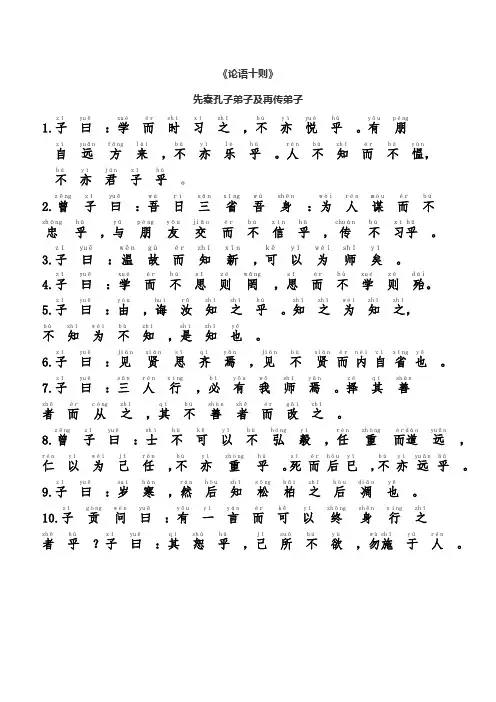 《论语十则》
先秦孔子弟子及再传弟子
zǐ yuē xué ér shí xí zhī bù yì yuè hū yǒu péng
1.子 曰 ：学 而 时 习 之 ，不 亦 悦 乎 。有 朋
zì yuǎn fāng lái bù yì lè hū rén bù zhī ér bù yùn
自 远 方 来 ，不 亦 乐 乎 。人 不 知 而 不 愠，
bù yì jūn zǐ hū
不 亦 君 子 乎 。
zēng zǐ yuē wú rì sān xǐng wú shēn wèi rén móu ér bù
2.曾 子 曰 ：吾 日 三 省 吾 身 ：为 人 谋 而 不
zhōng hū yǔ péng yǒu jiāo ér bù xìn hū chuán bù xí hū
忠 乎 ，与 朋 友 交 而 不 信 乎 ，传 不 习乎 。
zǐ yuē wēn gù ér zhī xīn kě yǐ wéi shī yǐ
3.子 曰 ：温 故 而 知 新 ，可 以 为 师 矣 。
zǐ yuē xué ér bù sī zé wǎng sī ér bù xué zé dài
4.子 曰 ：学 而 不 思 则 罔 ，思 而 不 学 则 殆。
zǐ yuē yóu huì rǔ zhī zhī hū zhī zhī wéi zhī zhī
5.子 曰 ：由 ，诲 汝 知 之 乎 。知 之 为 知 之，
bù zhī wéi bù zhī shì zhī yě
不 知 为 不 知 ，是 知 也 。
zǐ yuē jiàn xián sī qí yān jiàn bù xián ér nèi zì xǐng yě
6.子 曰 ：见 贤 思 齐 焉 ，见 不 贤 而内 自 省 也 。
zǐ yuē sān rén xíng bì yǒu wǒ shī yān zé qí shàn
7.子 曰 ：三 人 行 ，必 有 我 师 焉 。择 其 善
zhě ér cóng zhī qí bù shàn zhě ér gǎi zhī
者 而 从 之 ，其 不 善 者 而 改 之 。
zēng zǐ yuē shì bù kě yǐ bù hóng yì rèn zhòng ér dào yuǎn
8.曾 子 曰 ：士 不 可 以 不 弘 毅 ，任 重 而道 远 ，
rén yǐ wéi jǐ rèn bù yì zhòng hū sǐ ér hòu yǐ bù yì yuǎn hū
仁 以 为 己 任 ，不 亦 重 乎 。死 而 后 已 ，不 亦 远 乎 。
zǐ yuē suì hán rán hòu zhī sōng bǎi zhī hòu diāo yě
9.子 曰 ：岁 寒 ，然 后 知 松 柏 之 后 凋 也 。
zǐ gòng wèn yuē yǒu yī yán ér kě yǐ zhōng shēn xíng zhī
10.子 贡 问 曰 ：有 一 言 而 可 以 终 身 行 之
zhě hū zǐ yuē qí shù hū jǐ suǒ bù yù wù shī yú rén
者 乎 ？子 曰 ：其 恕 乎 ，己 所 不 欲 ，勿施 于 人 。